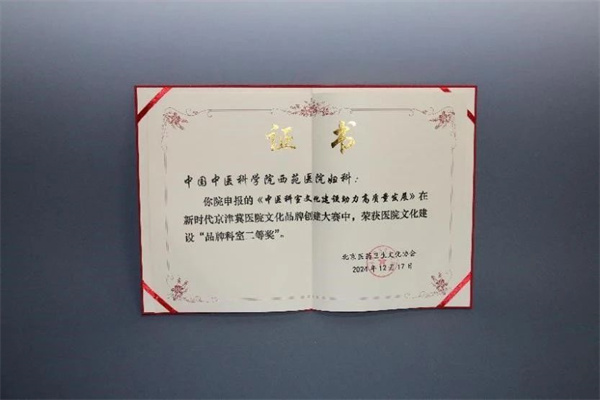 证书
中国中医科学院西苑医院妇科：
你院申报的《中医科室文化建设助力高质量发展》在
新时代京津冀医院文化品牌创建大赛中，荣获医院文化建
设“品牌科室二等奖”。
北京医药卫生文化协会
2024年12月17日